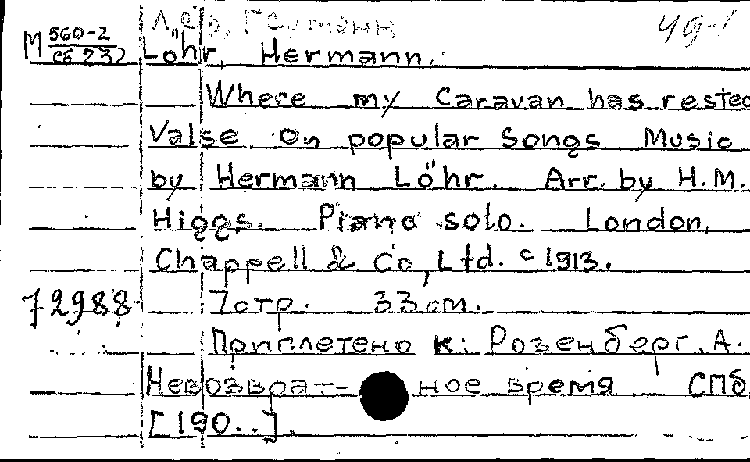 Лёр, Германн 49-1
М 560-2
сб 232 Löhr, Hermann.
Where my Caravan has rested
Valse on popular Songs Music
by Hermann Löhr. Arr. by H.M.
Higgs. Piano solo. London,
Chappell & Co, Ltd. c 1913.
72988 7 стр. 33 см.
Приплетено к: Розенберг. А.
Невозврат- ное время СПб,
[190..].